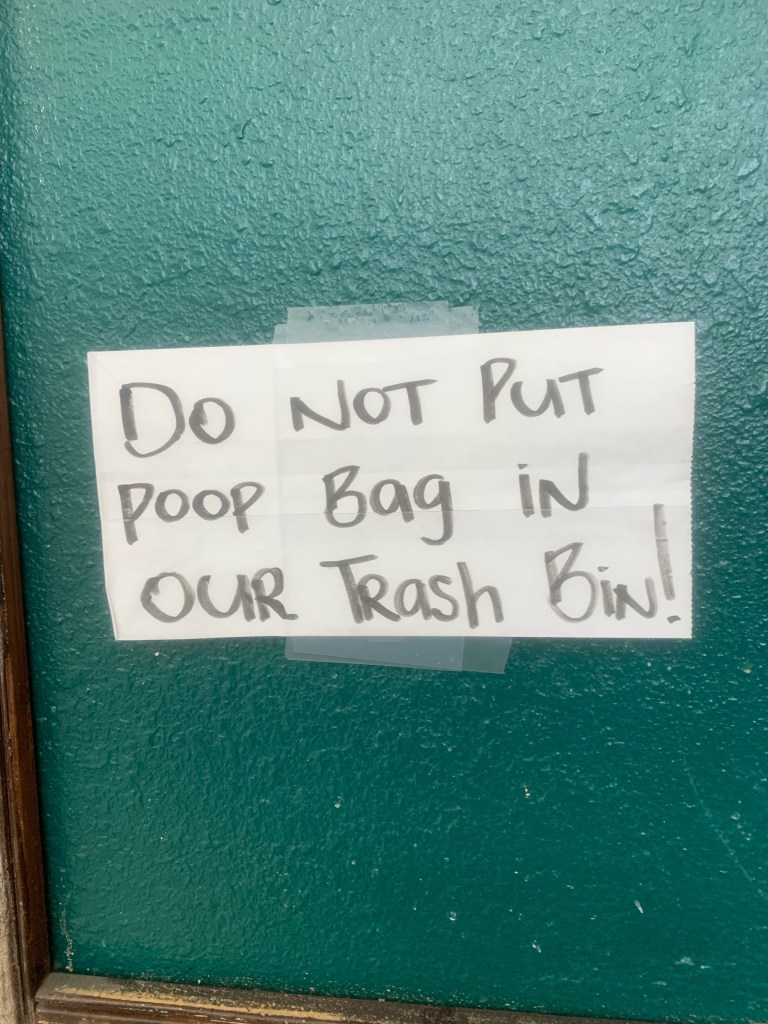 DO NOT PUT
POOP Bag iN
OUR TRash BiN!